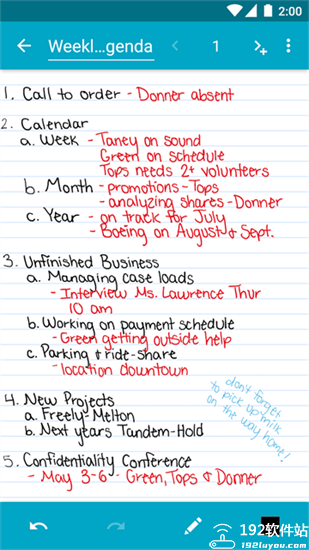 2:00
Weekl...genda
1
1. Call to order - Donner absent
2. Calendar
a. Week - Taney on sound
Green on schedule
Tops needs 2+ volunteers
b. Month - promotions - Tops
- analyzing shares - Donner
c. Year - on track for July
- Boeing on August & Sept.
3. Unfinished Business
a. Managing case loads
- Interview Ms. Lawrence Thur
10 am
b. Working on payment schedule
- Green getting outside help
c. Parking & ride-share
- location downtown
4. New Projects
a. Freely-Melton
b. Next years Tandem-Hold
don't forget
to pick up milk
on the way home!
5. Confidentiality Conference
- May 3-6 - Green, Tops & Donner
192软件站
192luyou.com